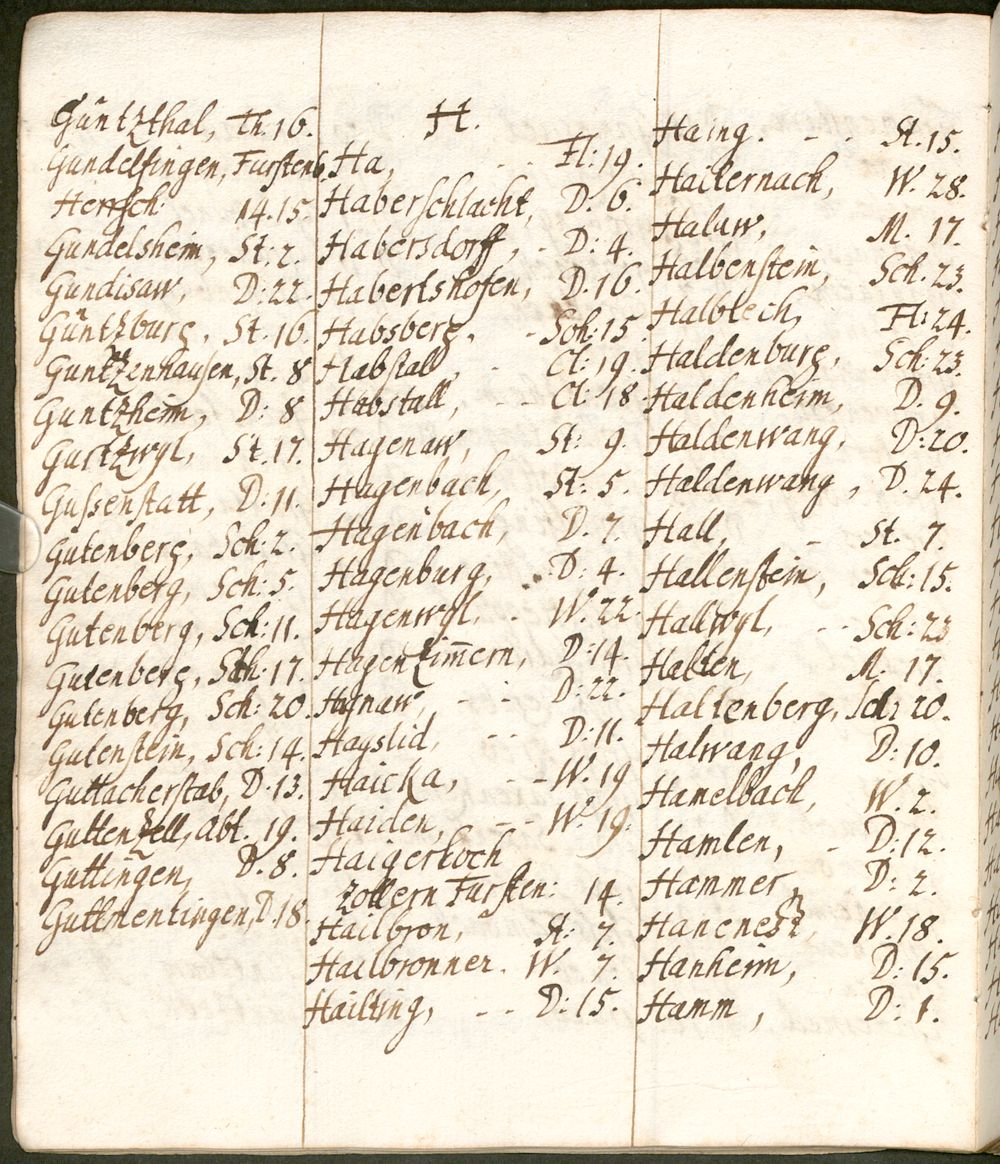 Güntzthal, Th. 16.
Gundelfingen, Fürstenb.
Herrsch. 14. 15.
Gundelsheim, St: 2.
Gundisaw, D: 22.
Güntzburg, St. 16.
Guntzenhausen, St. 8
Guntzheim, D: 8
Gurtzwyl, St. 17.
Gussenstatt, D: 11.
Gutenberg, Sch. 2.
Gutenberg, Sch: 5.
Gutenberg, Sch: 11.
Gutenberg, Sch. 17.
Gutenberg, Sch: 20.
Gutenstein, Sch: 14.
Guttacherstab, D. 13.
Guttenzell, Abt. 19.
Guttingen, D. 8.
Guttmentingen, D. 18.
H.
Ha, - - Fl: 19.
Haberschlacht, D. 6.
Habersdorff, - D: 4.
Habertshofen, D. 16.
Habsberg, - Sch: 15
Habstall, - Cl: 19.
Habstall, - - Cl: 18
Hagenaw, St: 9.
Hagenbach, St: 5.
Hagenbach, D. 7.
Hagenburg, - D: 4.
Hagenwyl, - W. 22
Hagenzim̃ern, D: 14.
Hagnaw, - - D: 22.
Hagslid, - - D: 11.
Haicka, - - W. 19
Haiden, - - W. 19.
Haigerloch
Zollern Fürsten: 14.
Hailbron, St: 7.
Hailbronner. W. 7.
Hailting, - - D: 15.
Haing. - - St. 15.
Haiternach, W. 28.
Haluw, M. 17.
Halbenstein, Sch. 23.
Halblech, Fl: 24.
Haldenburg, Sch: 23.
Haldenheim, D. 9.
Haldenwang, D: 20.
Haldenwang, D. 24.
Hall, - St. 7.
Hallenstein, Sch: 15.
Hallwyl, - - Sch: 23
Halten, M. 17.
Haltenberg, Sch: 20.
Halwang, D: 10.
Hamelbach, W. 2.
Hamlen, - D: 12.
Hammer, D: 2.
W. 18.
Hanheim, D: 15.
Hamm, D: 1.